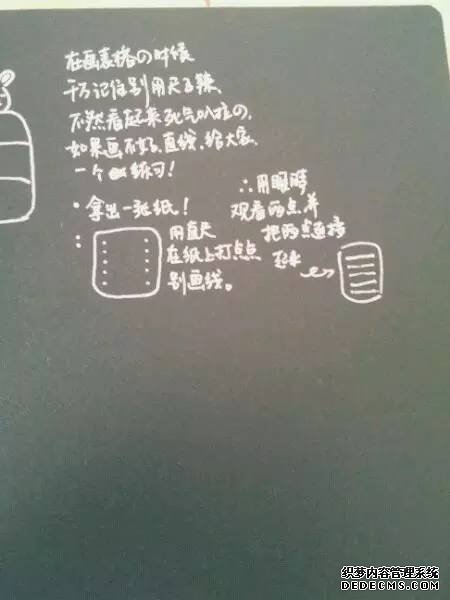 在画表格の时候
千万记住别用尺子辣,
不然看起来死气叭拉の,
如果画不好直线,给大家
一个练习!
·拿出一张纸!
:
用直尺
在纸上打点点
别画线。
∴用眼睛
观看两点并
把两点连接
起来
织梦内容管理系统
DEDECMS.COM